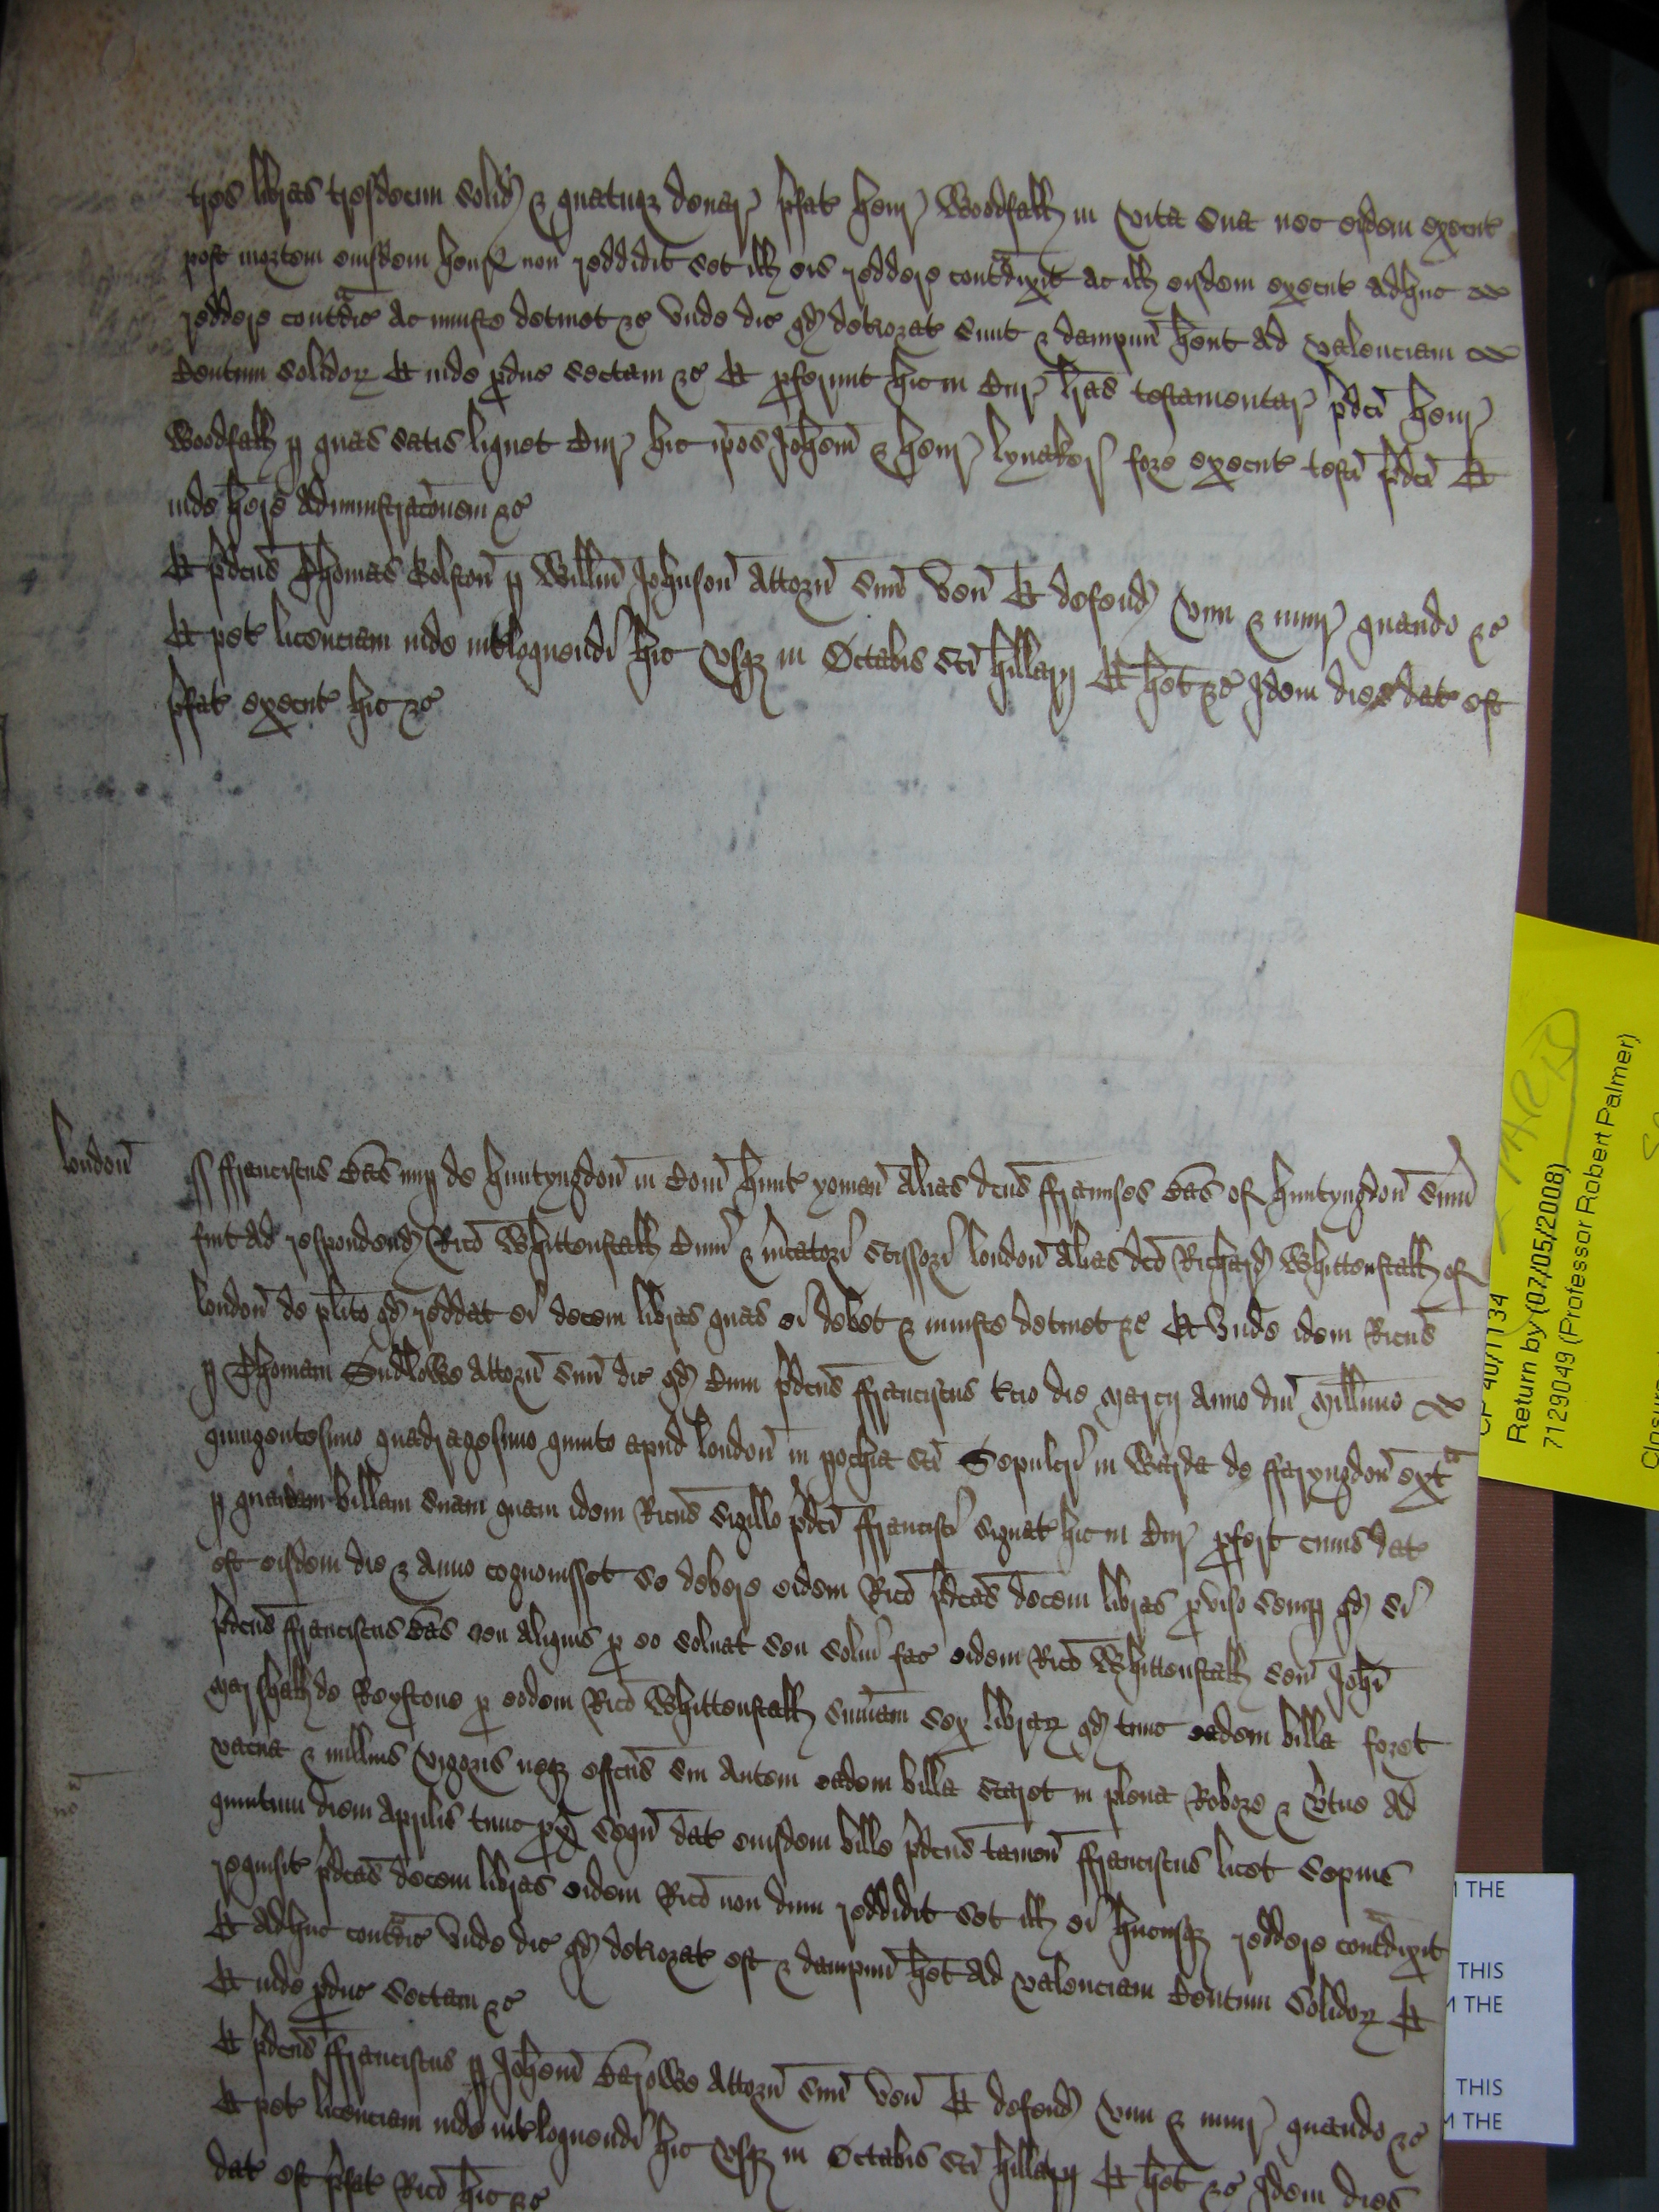 tres libras tresdecim solid & quatuor denar pfat Henr Woodfall in vita sua nec eisdem execut
post mortem eiusdem Henr non reddidit set ill eis reddere contradixit ac ill eisdem execut adhuc
reddere contradic ac iniuste detinet &c unde dic qd deteriorat sunt & dampnu hent ad valenciam
Centum solidor Et inde produc sectam &c Et proferunt hic in Cur lras testamentar pdci Henr
Woodfall p quas satis liquet Cur hic ipos Johem & Henr Lynaker fore execut testi pdci Et
inde here administracoem &c
Et pdcus Thomas Colston p Willm Johnson attorn suu ven Et defend vim & iniur quando &c
Et pet licenciam inde intloquendi hic usq in Octabis sci Hillarij Et het &c Idem dies dat est
pfat execut hic &c
London
ss Franciscus Cas nup de Huntyngdon in Com Hunt yoman alias dcus Fraunses Cas of Huntyngdon sum
fuit ad respondend Rico Whittenstall Civi & mcatori scissori London alias dco Richard Whittenstall of
London de plito qd reddat ei decem libras quas ei debet & iniuste detinet &c Et unde idem Ricus
p Thomam Sudlowe attorn suu dic qd cum pdcus Franciscus tcio die Marcij anno dni Millimo
quingentesimo quadragesimo quinto apud London in pochia sci Sepulcri in Warda de Faryngdon ext
p quandam billam suam quam idem Ricus sigillo pdci Francisci signat hic in Cur profert cuius dat
est eisdem die & anno cognovisset se debere eidem Rico pdcas decem libras proviso semp qd si
pdcus Franciscus Cas seu aliquis pro eo solvat seu solvi fac eidem Rico Whittenstall seu Johi
Marshall de Roystone pro eodem Rico Whittenstall summam sex librar qd tunc eadem billa foret
vacua & nullius vigoris neq effcus sin autem eadem billa staret in pleno Robore & vtute ad
quintum diem Aprilis tunc prox sequen dat eiusdem bille pdcus tamen Franciscus licet sepius
requisit pdcas decem libras eidem Rico non dum reddidit set ill ei hucusq reddere contradixit
Et adhuc contradic unde dic qd deteriorat est & dampnu het ad valenciam Centum solidor Et
Et inde produc sectam &c
Et pdcus Franciscus p Johem Carowe attorn suu ven Et defend vim & iniur quando &c
Et pet licenciam inde intloquendi hic usq in Octabis sci Hillarij Et het &c Idem dies
dat est pfat Rico hic &c
CP 40/1134
Return by (07/05/2008)
7129049 (Professor Robert Palmer)
Closure
THE
THIS
THE
THIS
THE